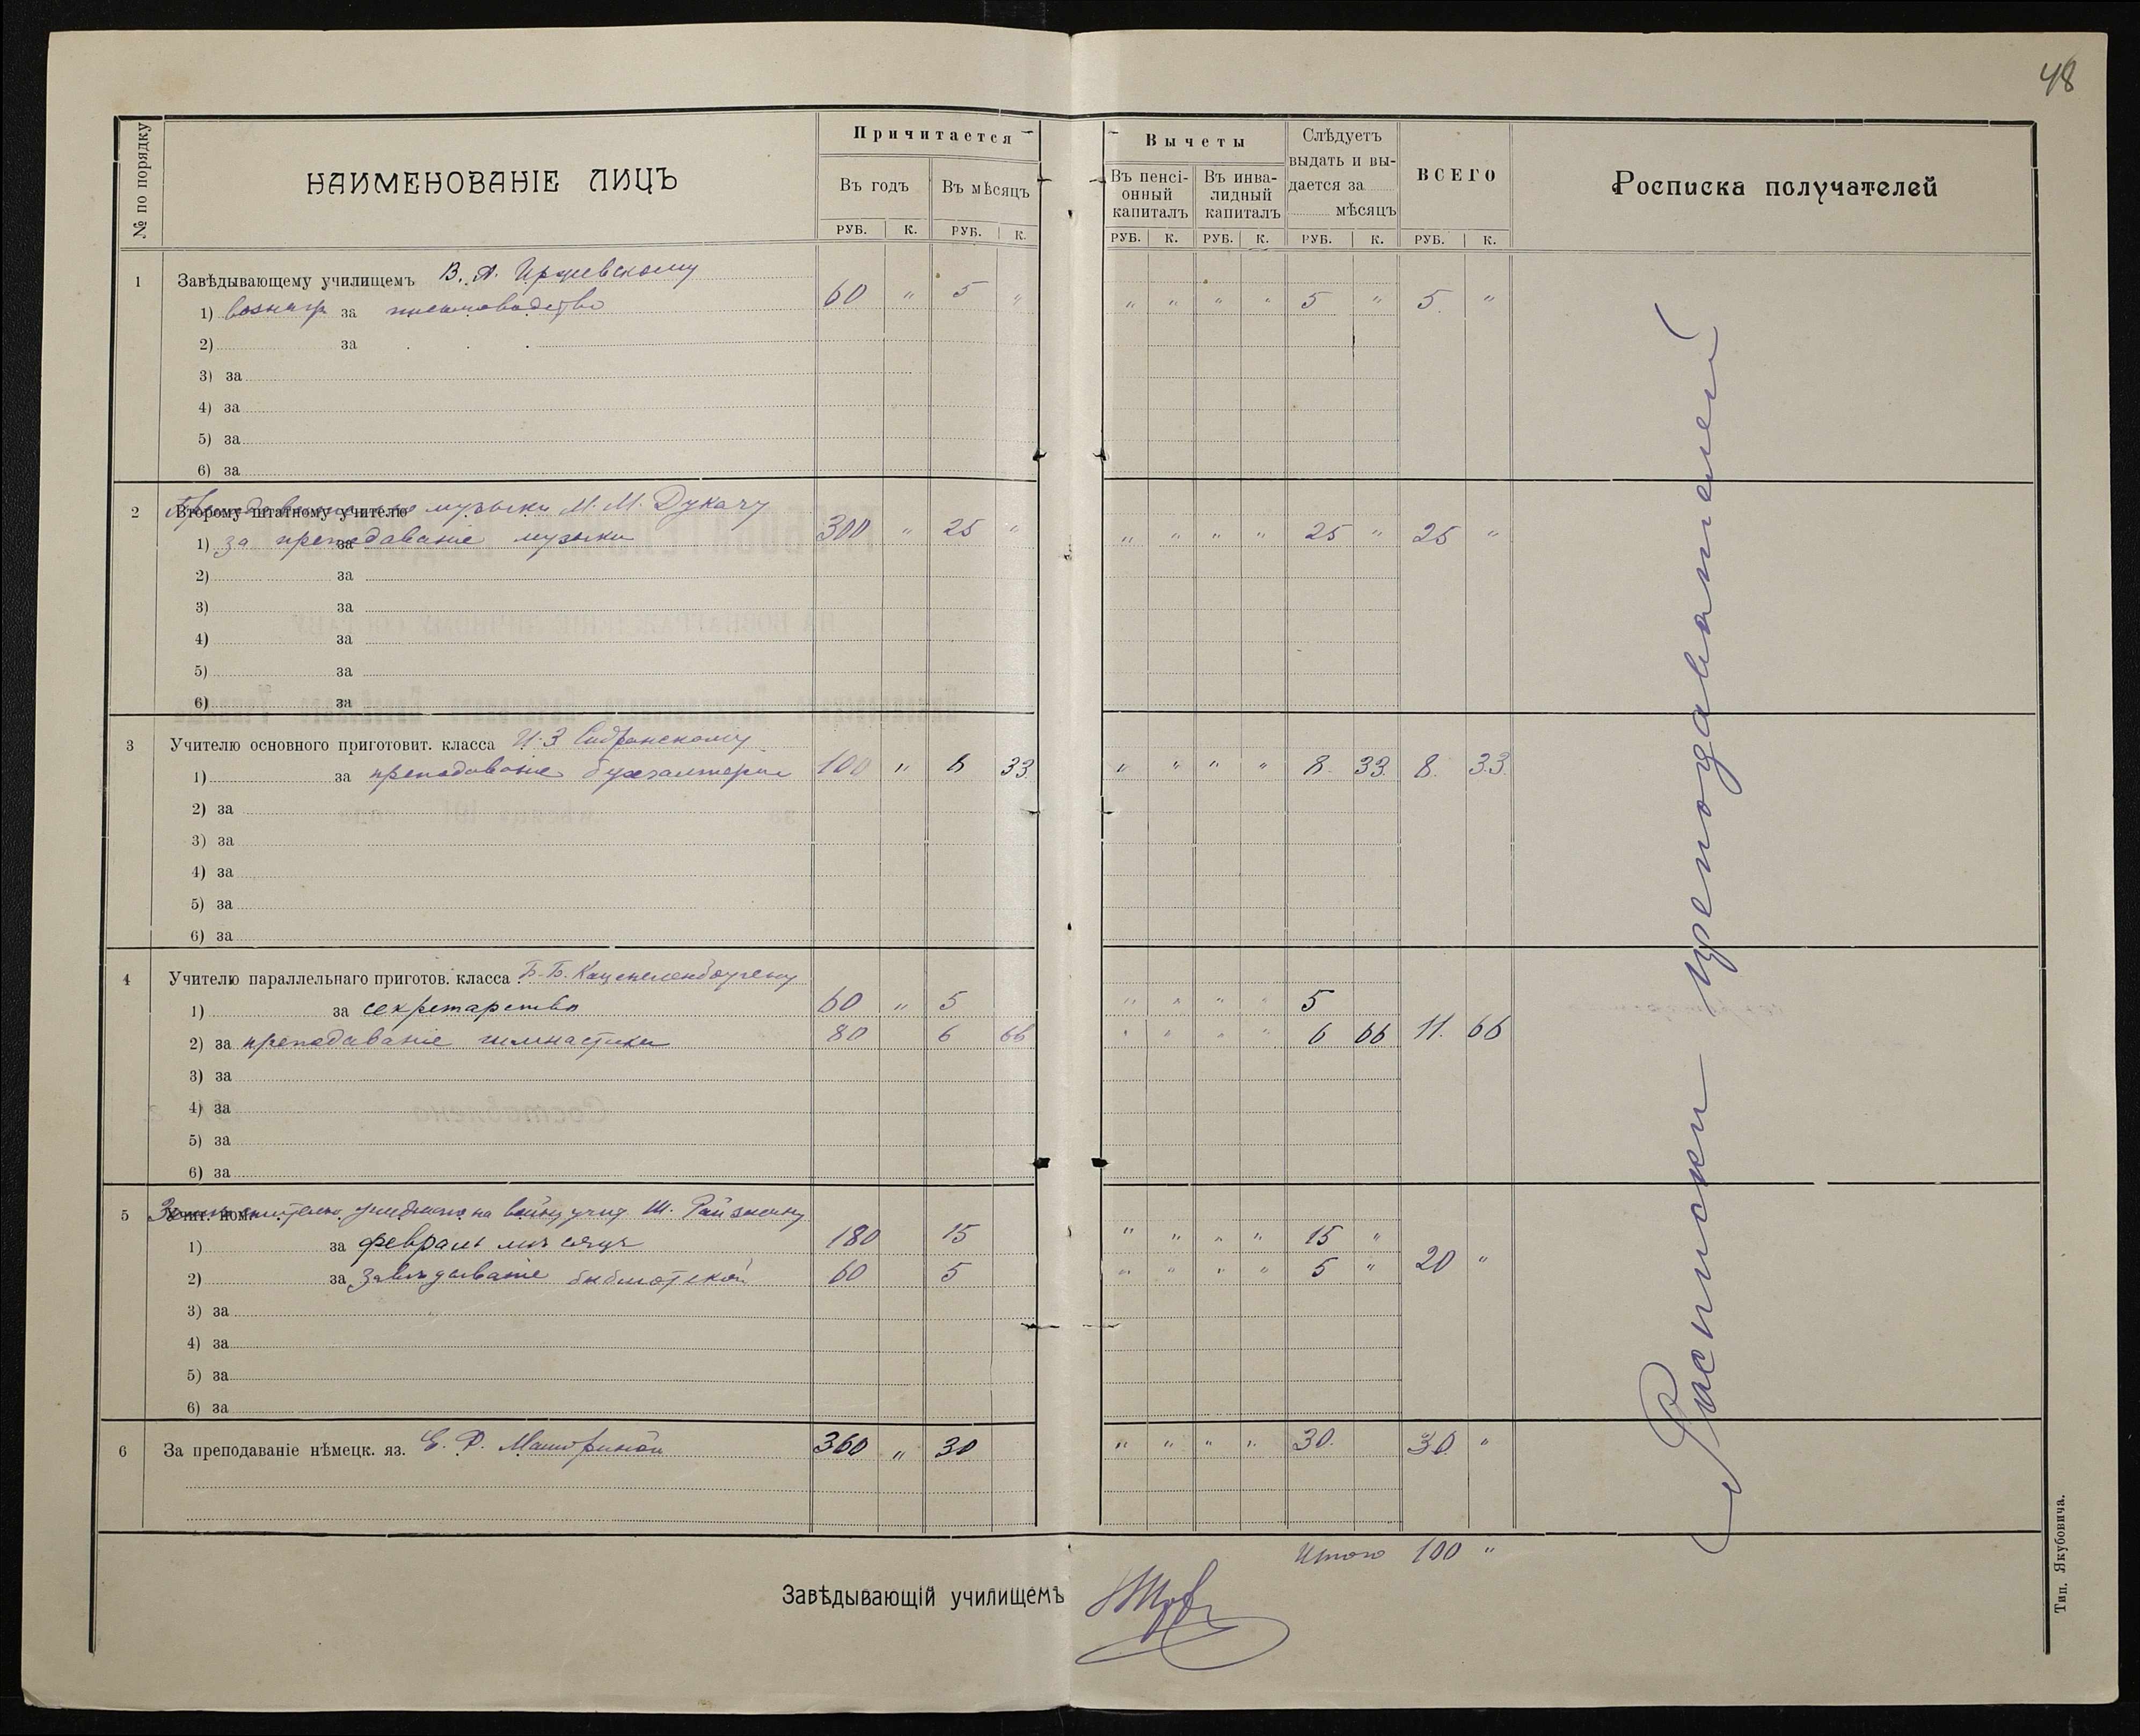 48
№ по порядку
НАИМЕНОВАНІЕ ЛИЦЪ
Причитается
Въ годъ
Въ мѣсяцъ
РУБ. К. РУБ. К.
Вычеты
Въ пенсі-
онный
капиталъ
Въ инва-
лидный
капиталъ
Слѣдуетъ
выдать и вы-
дается за
мѣсяцъ
ВСЕГО
Росписка получателей
РУБ. К. РУБ. К. РУБ. К. РУБ. К.
1 Завѣдывающему училищемъ В. А.
1) вознагр за письмоводство 60 " 5 " " " " " 5 " 5 "
2) за
3) за
4) за
5) за
6) за
2 Второму штатному учителю музыки М. М. Дукачу
1) за преподаваніе музыки 300 " 25 " " " " " 25 " 25 "
2) за
3) за
4) за
5) за
6) за
3 Учителю основного приготовит. класса И. З
1) за преподаваніе бухгалтеріи 100 " 8 33 " " " " 8 33 8 33
2) за
3) за
4) за
5) за
6) за
4 Учителю параллельнаго приготов. класса Б. Б. Каценеленбогену
1) за секретарство 60 " 5 " " " " 5
2) за преподаваніе гимнастики 80 6 66 " " " " 6 66 11 66
3) за
4) за
5) за
6) за
5 Учит. ном. на войну учит Ш. Райзману
1) за февраль мѣсяцъ 180 15 " " " " 15 "
2) за завѣдываніе библіотекой 60 5 " " " " 5 " 20 "
3) за
4) за
5) за
6) за
6 За преподаваніе нѣмецк. яз. Е. Ф. 360 " 30 " " " " 30 30 "
Итого 100 "
Завѣдывающій училищемъ
Росписки преподавателей
Тип. Якубовича.